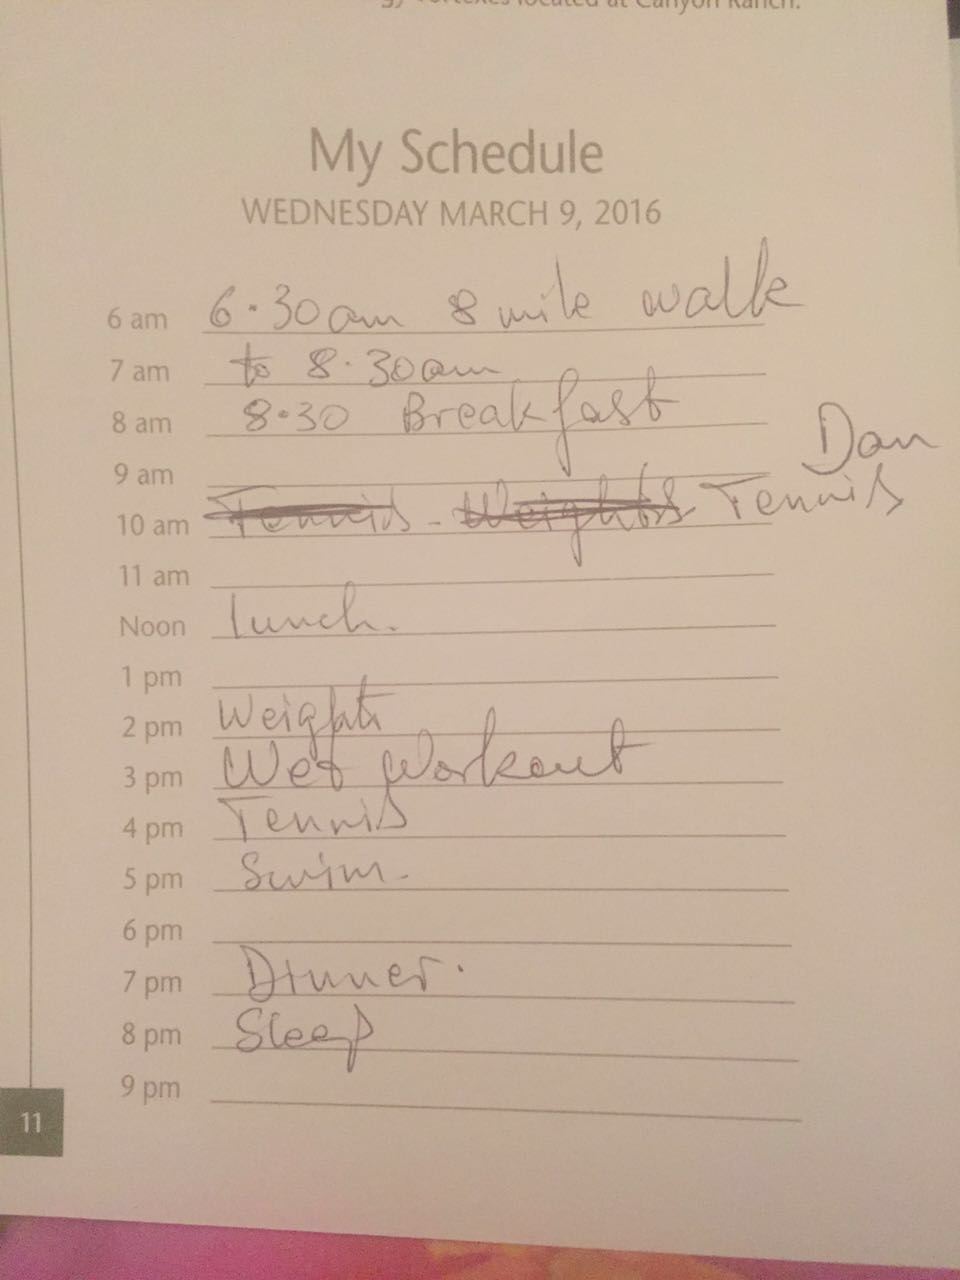 Vortexes located at Canyon Ranch.
My Schedule
WEDNESDAY MARCH 9, 2016
6 am 6.30am 8 mile walk
7 am to 8.30am
8 am 8.30 Breakfast
9 am Dan
10 am Tennis - Weights Tennis
11 am
Noon Lunch.
1 pm
2 pm Weights
3 pm Wet Workout
4 pm Tennis
5 pm Swim.
6 pm
7 pm Dinner.
8 pm Sleep
9 pm
11